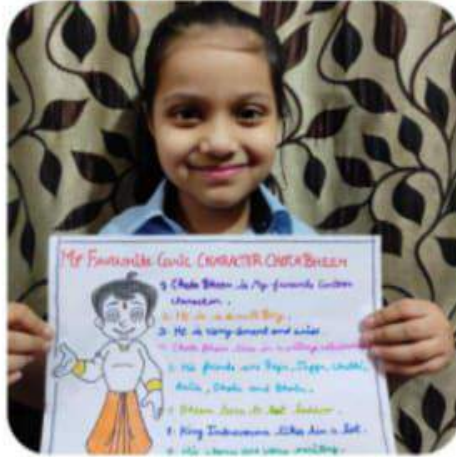 My Favourite Comic CHARACTER CHOTA BHEEM
1) Chota Bheem is My favourite Cartoon
character.
2. He is a small Boy.
3. He is very smart and wise.
4. Chota Bheem lives in a village
5. His friends are Raju, Jaggu, Chutki,
Kalia, Dholu and Bholu.
Bheem loves to eat laddoo.
8. King Indravarma likes him a lot.
9. His stories are very exciting.